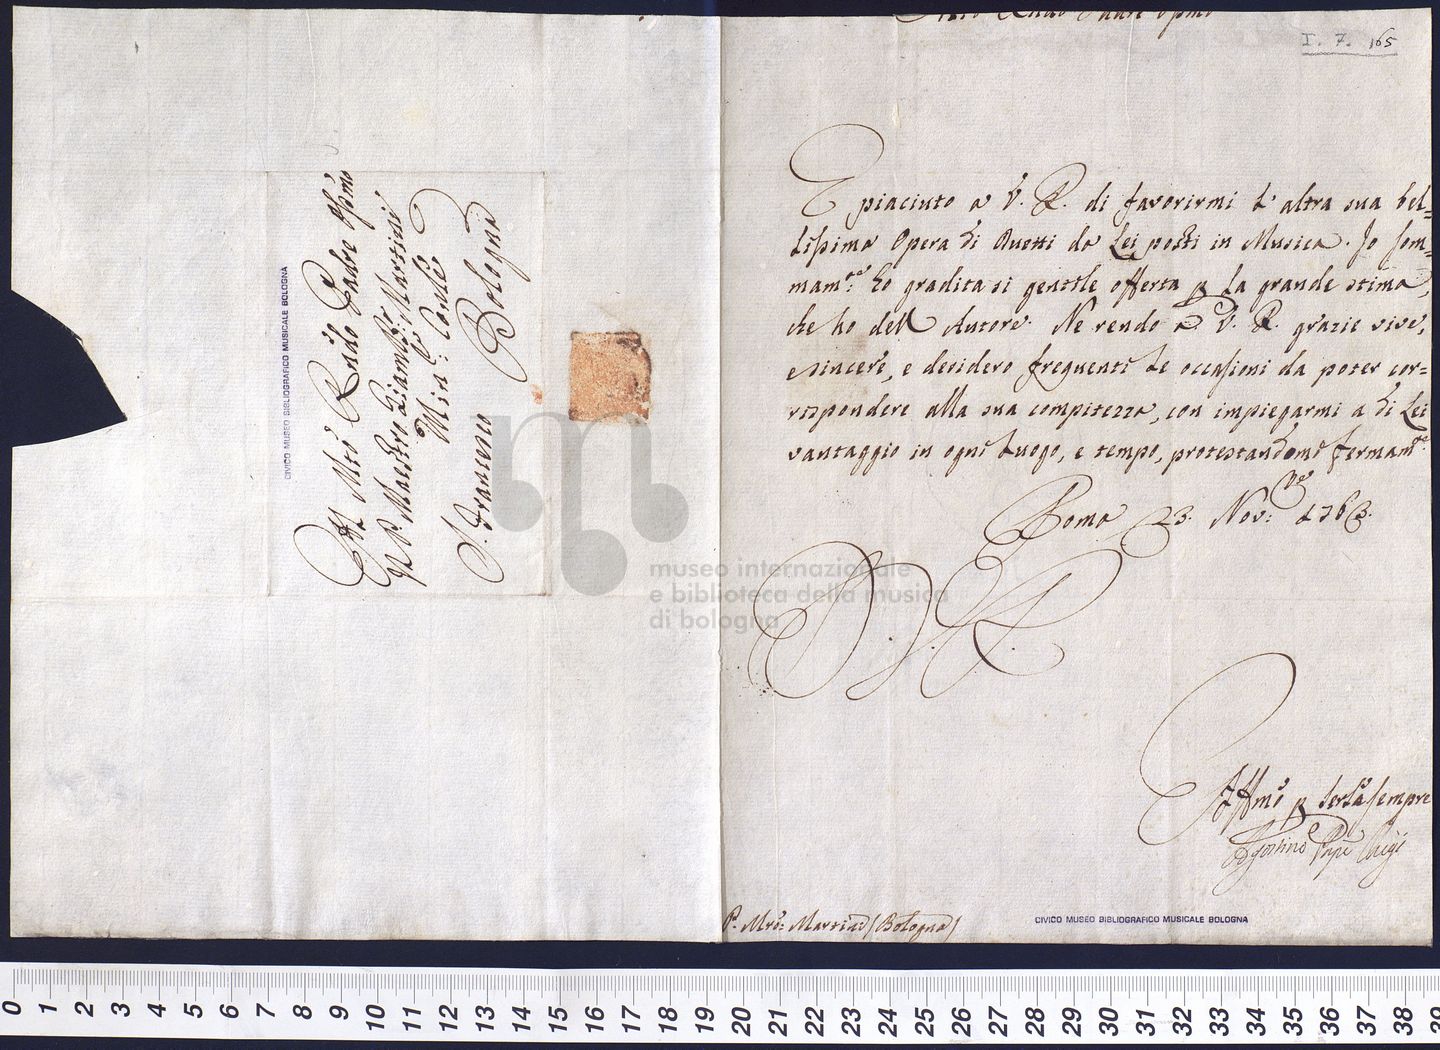 Al Mto Rndo Padre Ossmo
Il P. Maestro Giambta Martini
Min: Conle
S. Francesco
Bologna
CIVICO MUSEO BIBLIOGRAFICO MUSICALE BOLOGNA
Mto Rndo Padre Ossmo
I. 7. 165
E piaciuto a V. R. di favorirmi l'altra sua bel=
lissima Opera di Duetti da Lei posti in Musica. Io som=
mam.te ho gradita si gentile offerta p la grande stima,
che ho dell Autore. Ne rendo a V. R. grazie vive,
e sincere, e desidero frequenti le occasioni da poter cor=
rispondere alla sua compitezza, con impiegarmi a di Lei
vantaggio in ogni luogo, e tempo, protestandomi fermam.te
Roma 23. Nov:bre 1763.
D. V. R.
Affmo p servla sempre
Agostino Ppe Chigi
P. Mro: Martini (Bologna)
CIVICO MUSEO BIBLIOGRAFICO MUSICALE BOLOGNA
museo internazionale
e biblioteca della musica
di bologna
0 1 2 3 4 5 6 7 8 9 10 11 12 13 14 15 16 17 18 19 20 21 22 23 24 25 26 27 28 29 30 31 32 33 34 35 36 37 38 39